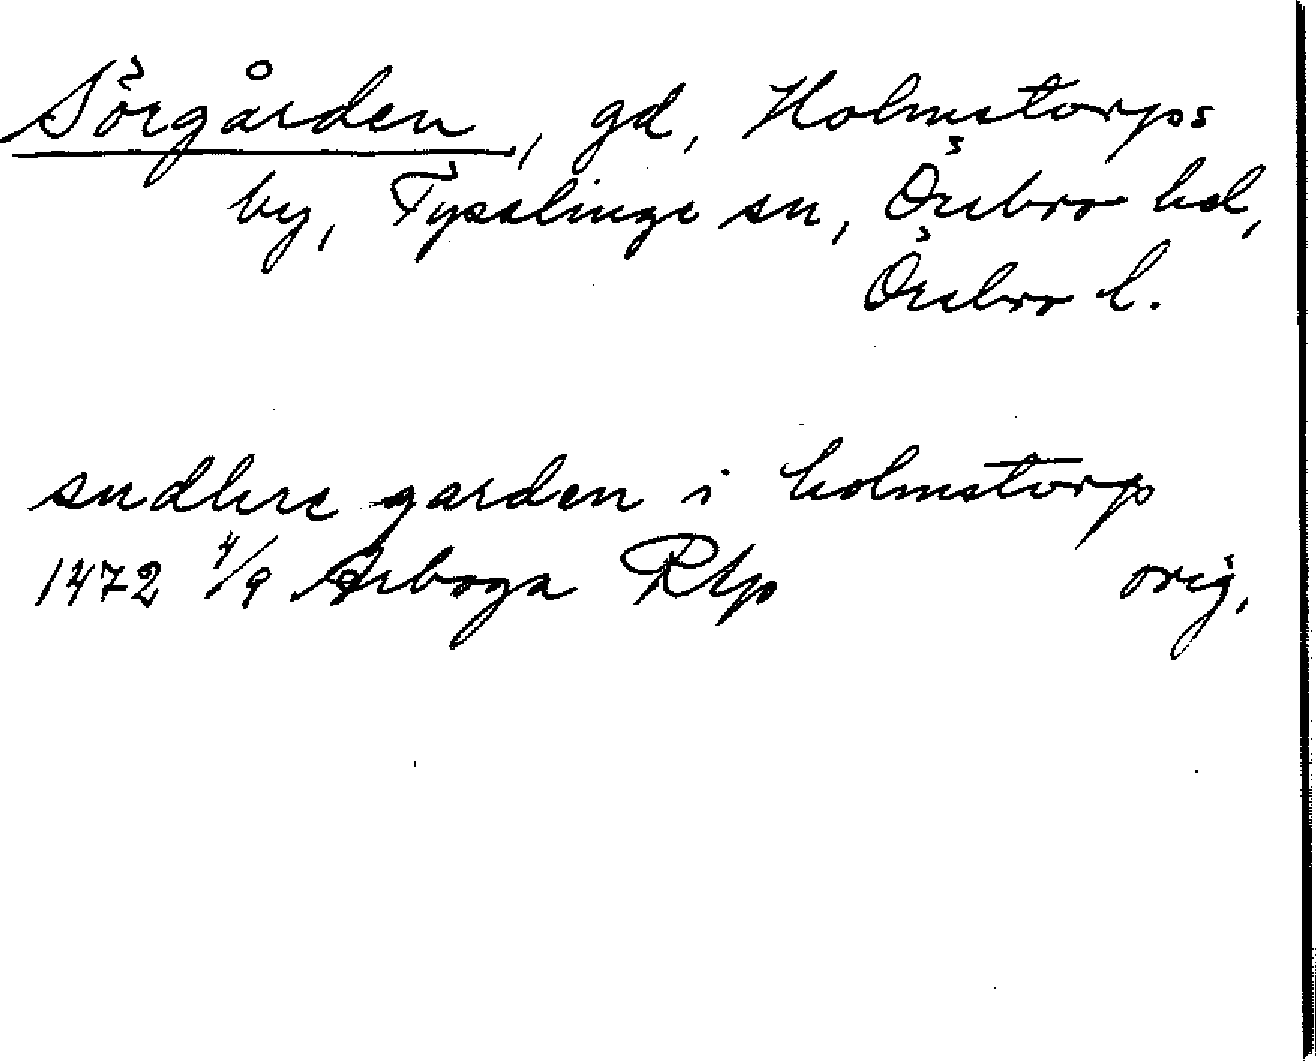 Sörgården, gd, Holmstorps
by, Tysslinge sn, Örebro hd,
Örebro l.
sudhre garden i holmstorp
1472 4/9 Arboga Rtp orig.